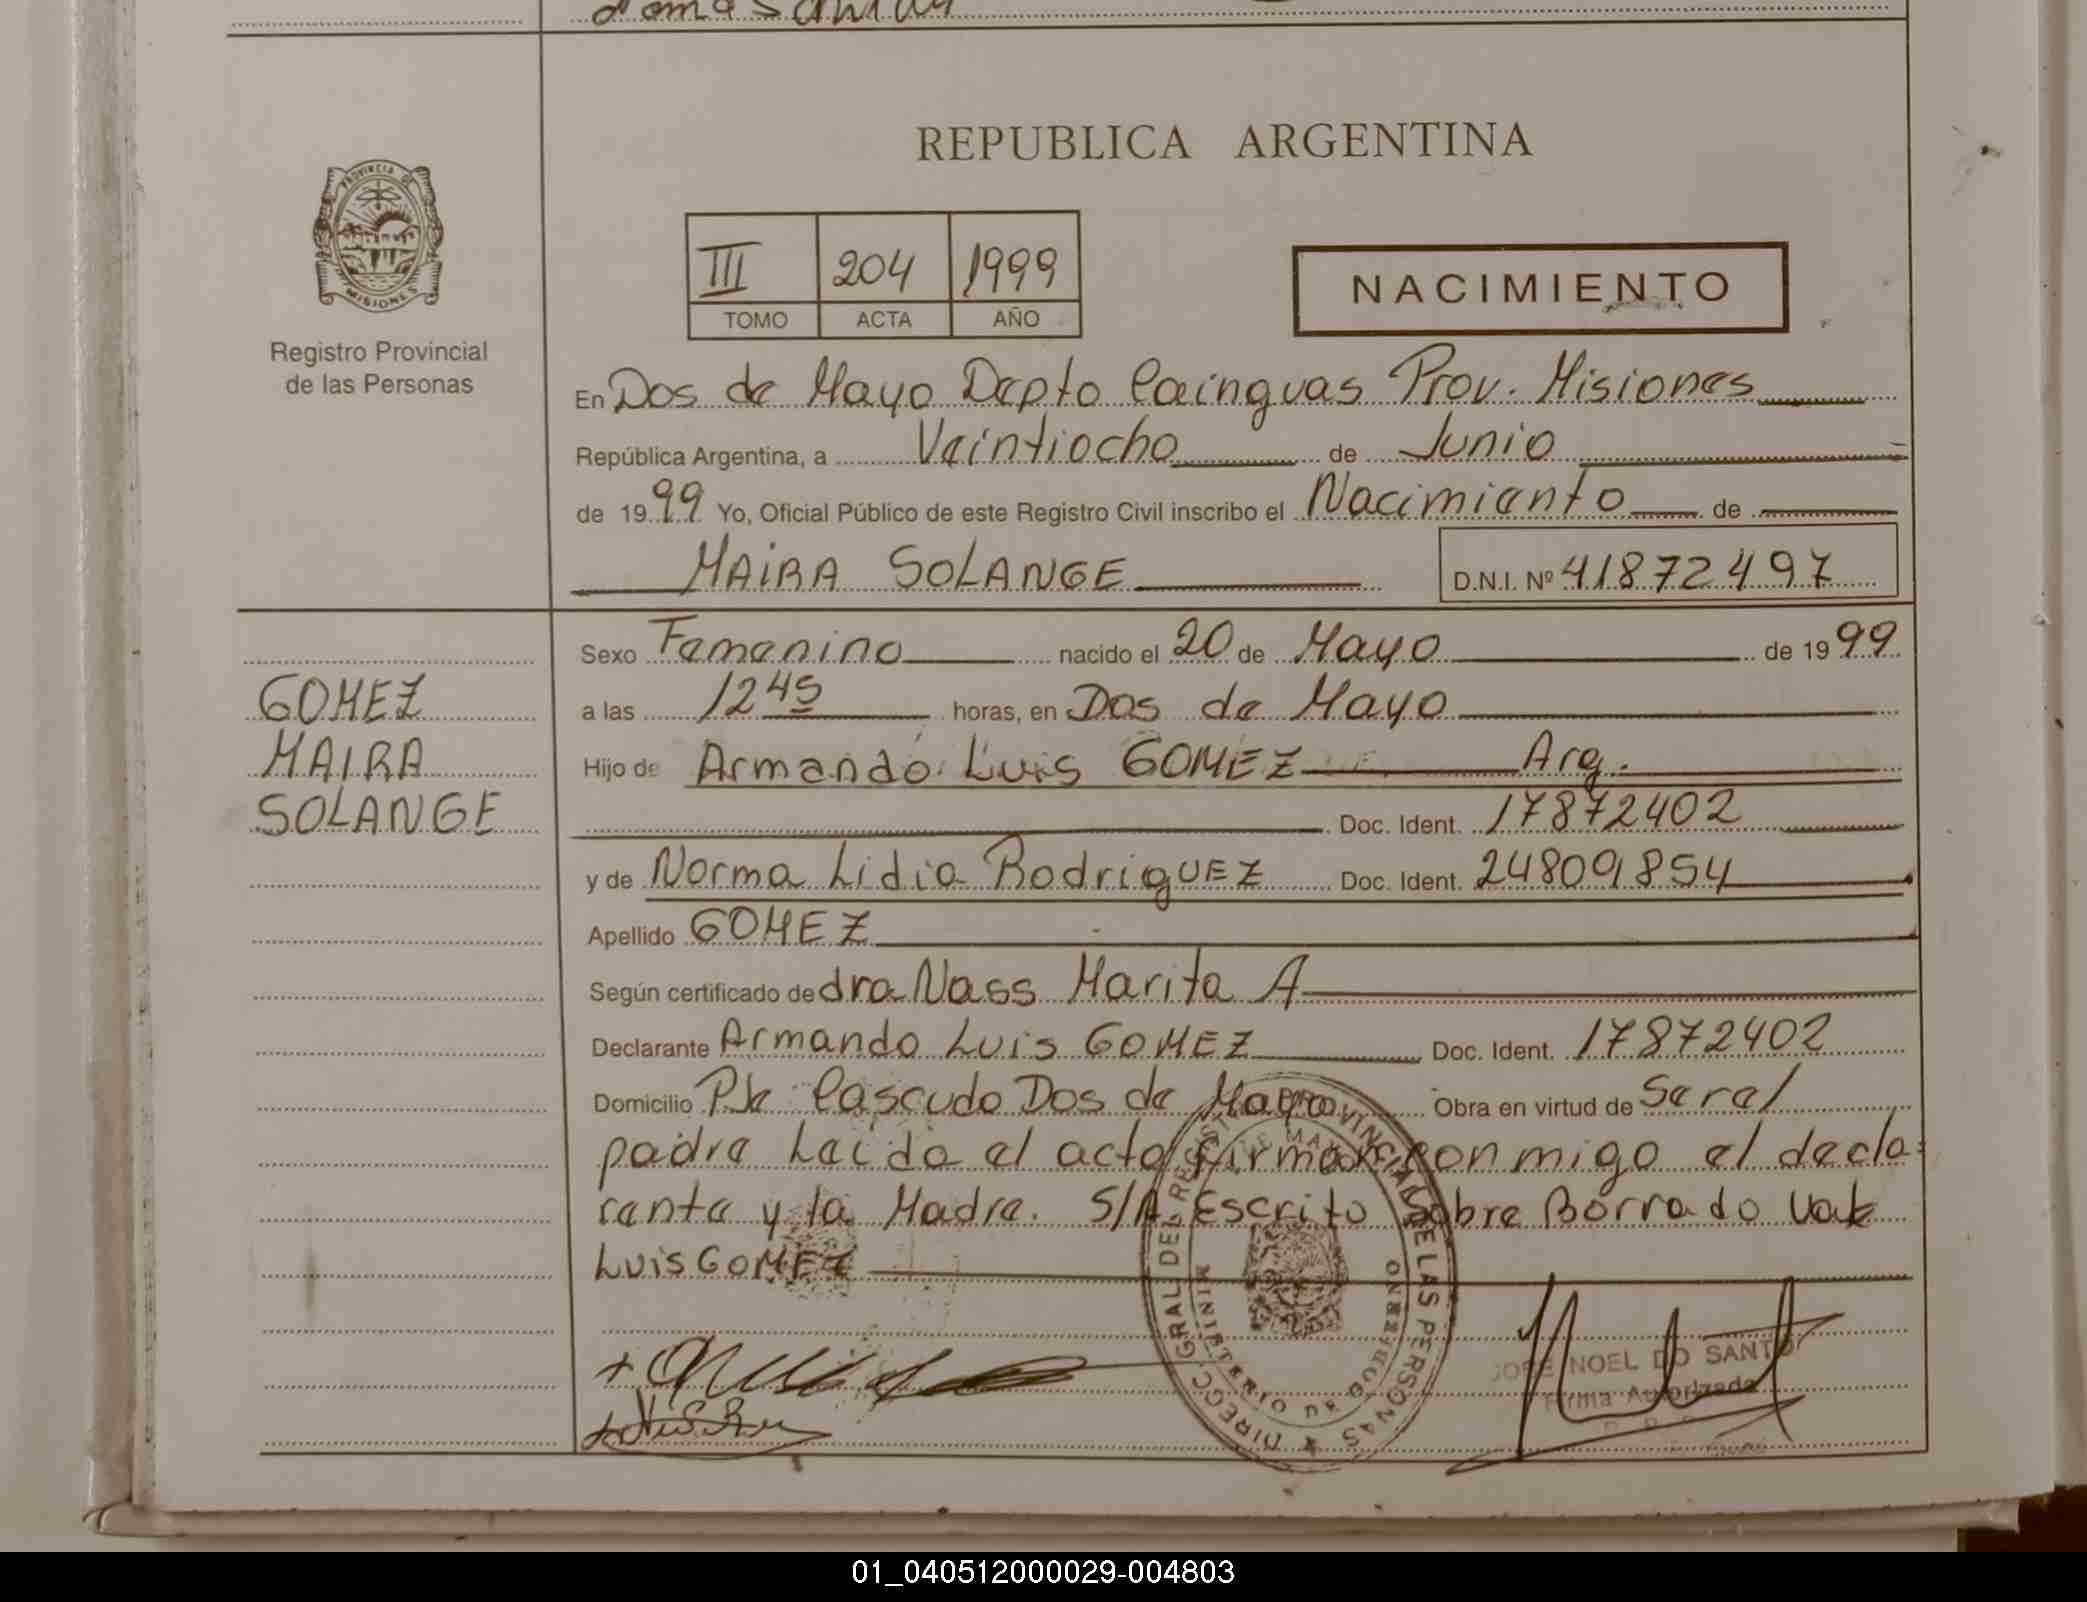 REPUBLICA ARGENTINA
PROVINCIA DE MISIONES
Registro Provincial
de las Personas
III 204 1999
TOMO ACTA AÑO
NACIMIENTO
En Dos de Mayo Depto Cainguas Prov. Misiones
República Argentina, a Veintiocho de Junio
de 1999 Yo, Oficial Público de este Registro Civil inscribo el Nacimiento de
MAIRA SOLANGE D.N.I. Nº 41872497
GOMEZ
MAIRA
SOLANGE
Sexo Femenino nacido el 20 de Mayo de 1999
a las 12 45 horas, en Dos de Mayo
Hijo de Armando Luis GOMEZ Arg.
Doc. Ident. 17872402
y de Norma Lidia RodriguEZ Doc. Ident. 24809854
Apellido GOMEZ
Según certificado de dra Nass Marita A
Declarante Armando Luis GOMEZ Doc. Ident. 17872402
Domicilio Pje Cascudo Dos de Mayo Obra en virtud de Ser el
padre Leida el acta firman conmigo el decla-
rante y la Madre. S/A Escrito sobre Borrado Vale
Luis GOMEZ
DIRECC. GRAL. DEL REGISTRO PROVINCIAL DE LAS PERSONAS
MINISTERIO DE GOBIERNO
JOSE NOEL DO SANTO
Firma Autorizada
01_040512000029-004803